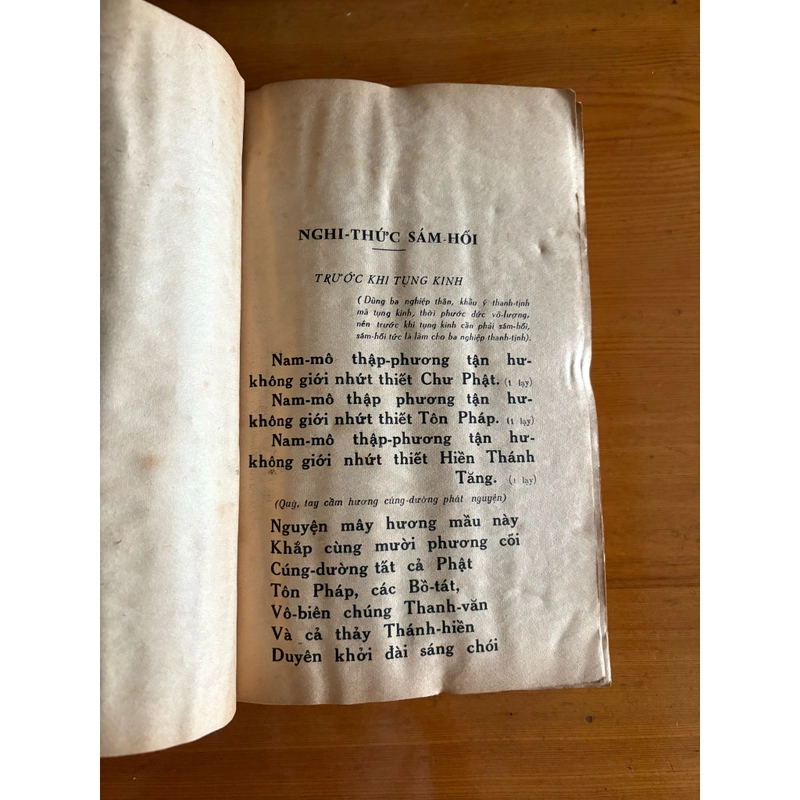 NGHI-THỨC SÁM-HỐI
TRƯỚC KHI TỤNG KINH
( Dùng ba nghiệp thân, khẩu ý thanh-tịnh
mà tụng kinh, thời phước đức vô-lượng,
nên trước khi tụng kinh cần phải sám-hối,
sám-hối tức là làm cho ba nghiệp thanh-tịnh).
Nam-mô thập-phương tận hư-
không giới nhứt thiết Chư Phật. (1 lạy)
Nam-mô thập phương tận hư-
không giới nhứt thiết Tôn Pháp. (1 lạy)
Nam-mô thập-phương tận hư-
không giới nhứt thiết Hiền Thánh
Tăng. (1 lạy)
(Quỳ, tay cầm hương cúng-dường phát nguyện)
Nguyện mây hương mầu này
Khắp cùng mười phương cõi
Cúng-dường tất cả Phật
Tôn Pháp, các Bồ-tát,
Vô-biên chúng Thanh-văn
Và cả thảy Thánh-hiền
Duyên khởi đài sáng chói